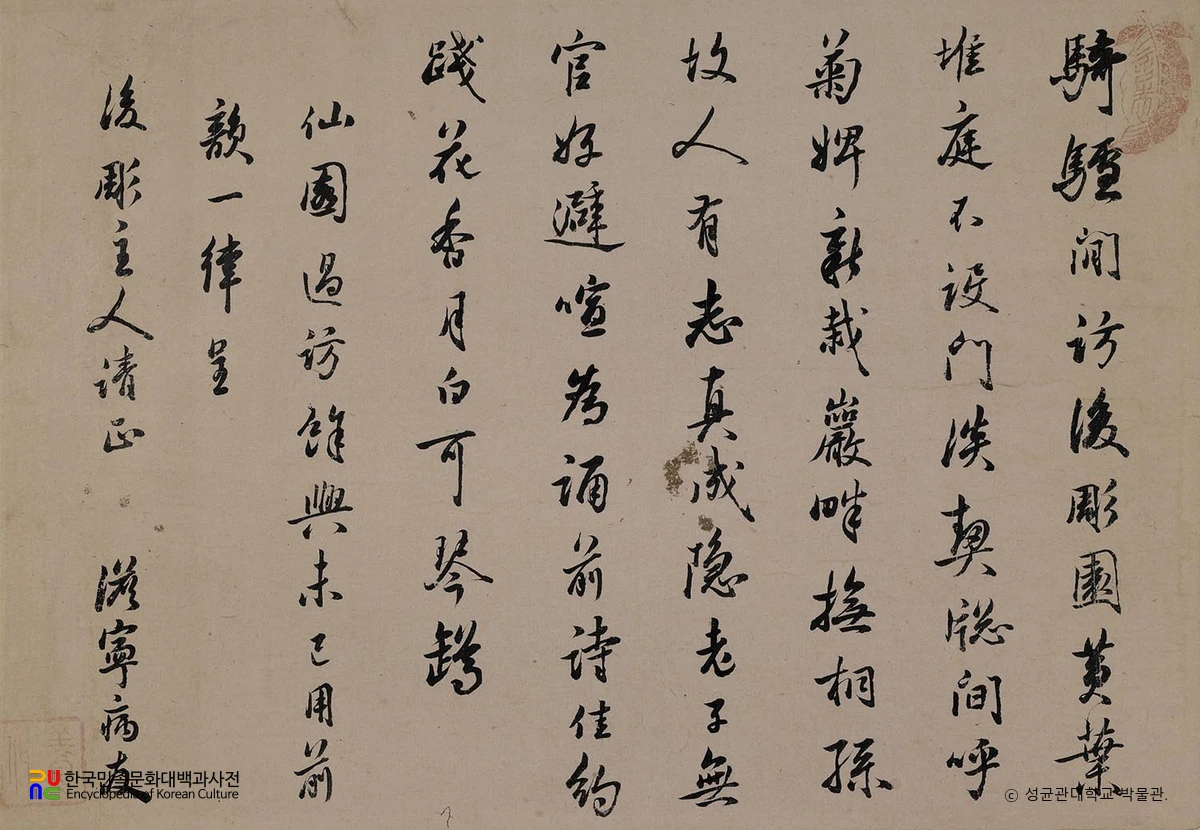 騎驢閒訪後彫園黃葉
堆庭不設門淡契牕間呼
菊婢新栽巖畔撫桐孫
故人有志真成隱老子無
官好避喧為誦前詩佳約
踐花香月白可琴罇
仙園過訪餘興未已用前
韻一律呈
後彫主人請正 寧病友
한국민족문화대백과사전
Encyclopedia of Korean Culture
ⓒ 성균관대학교 박물관.